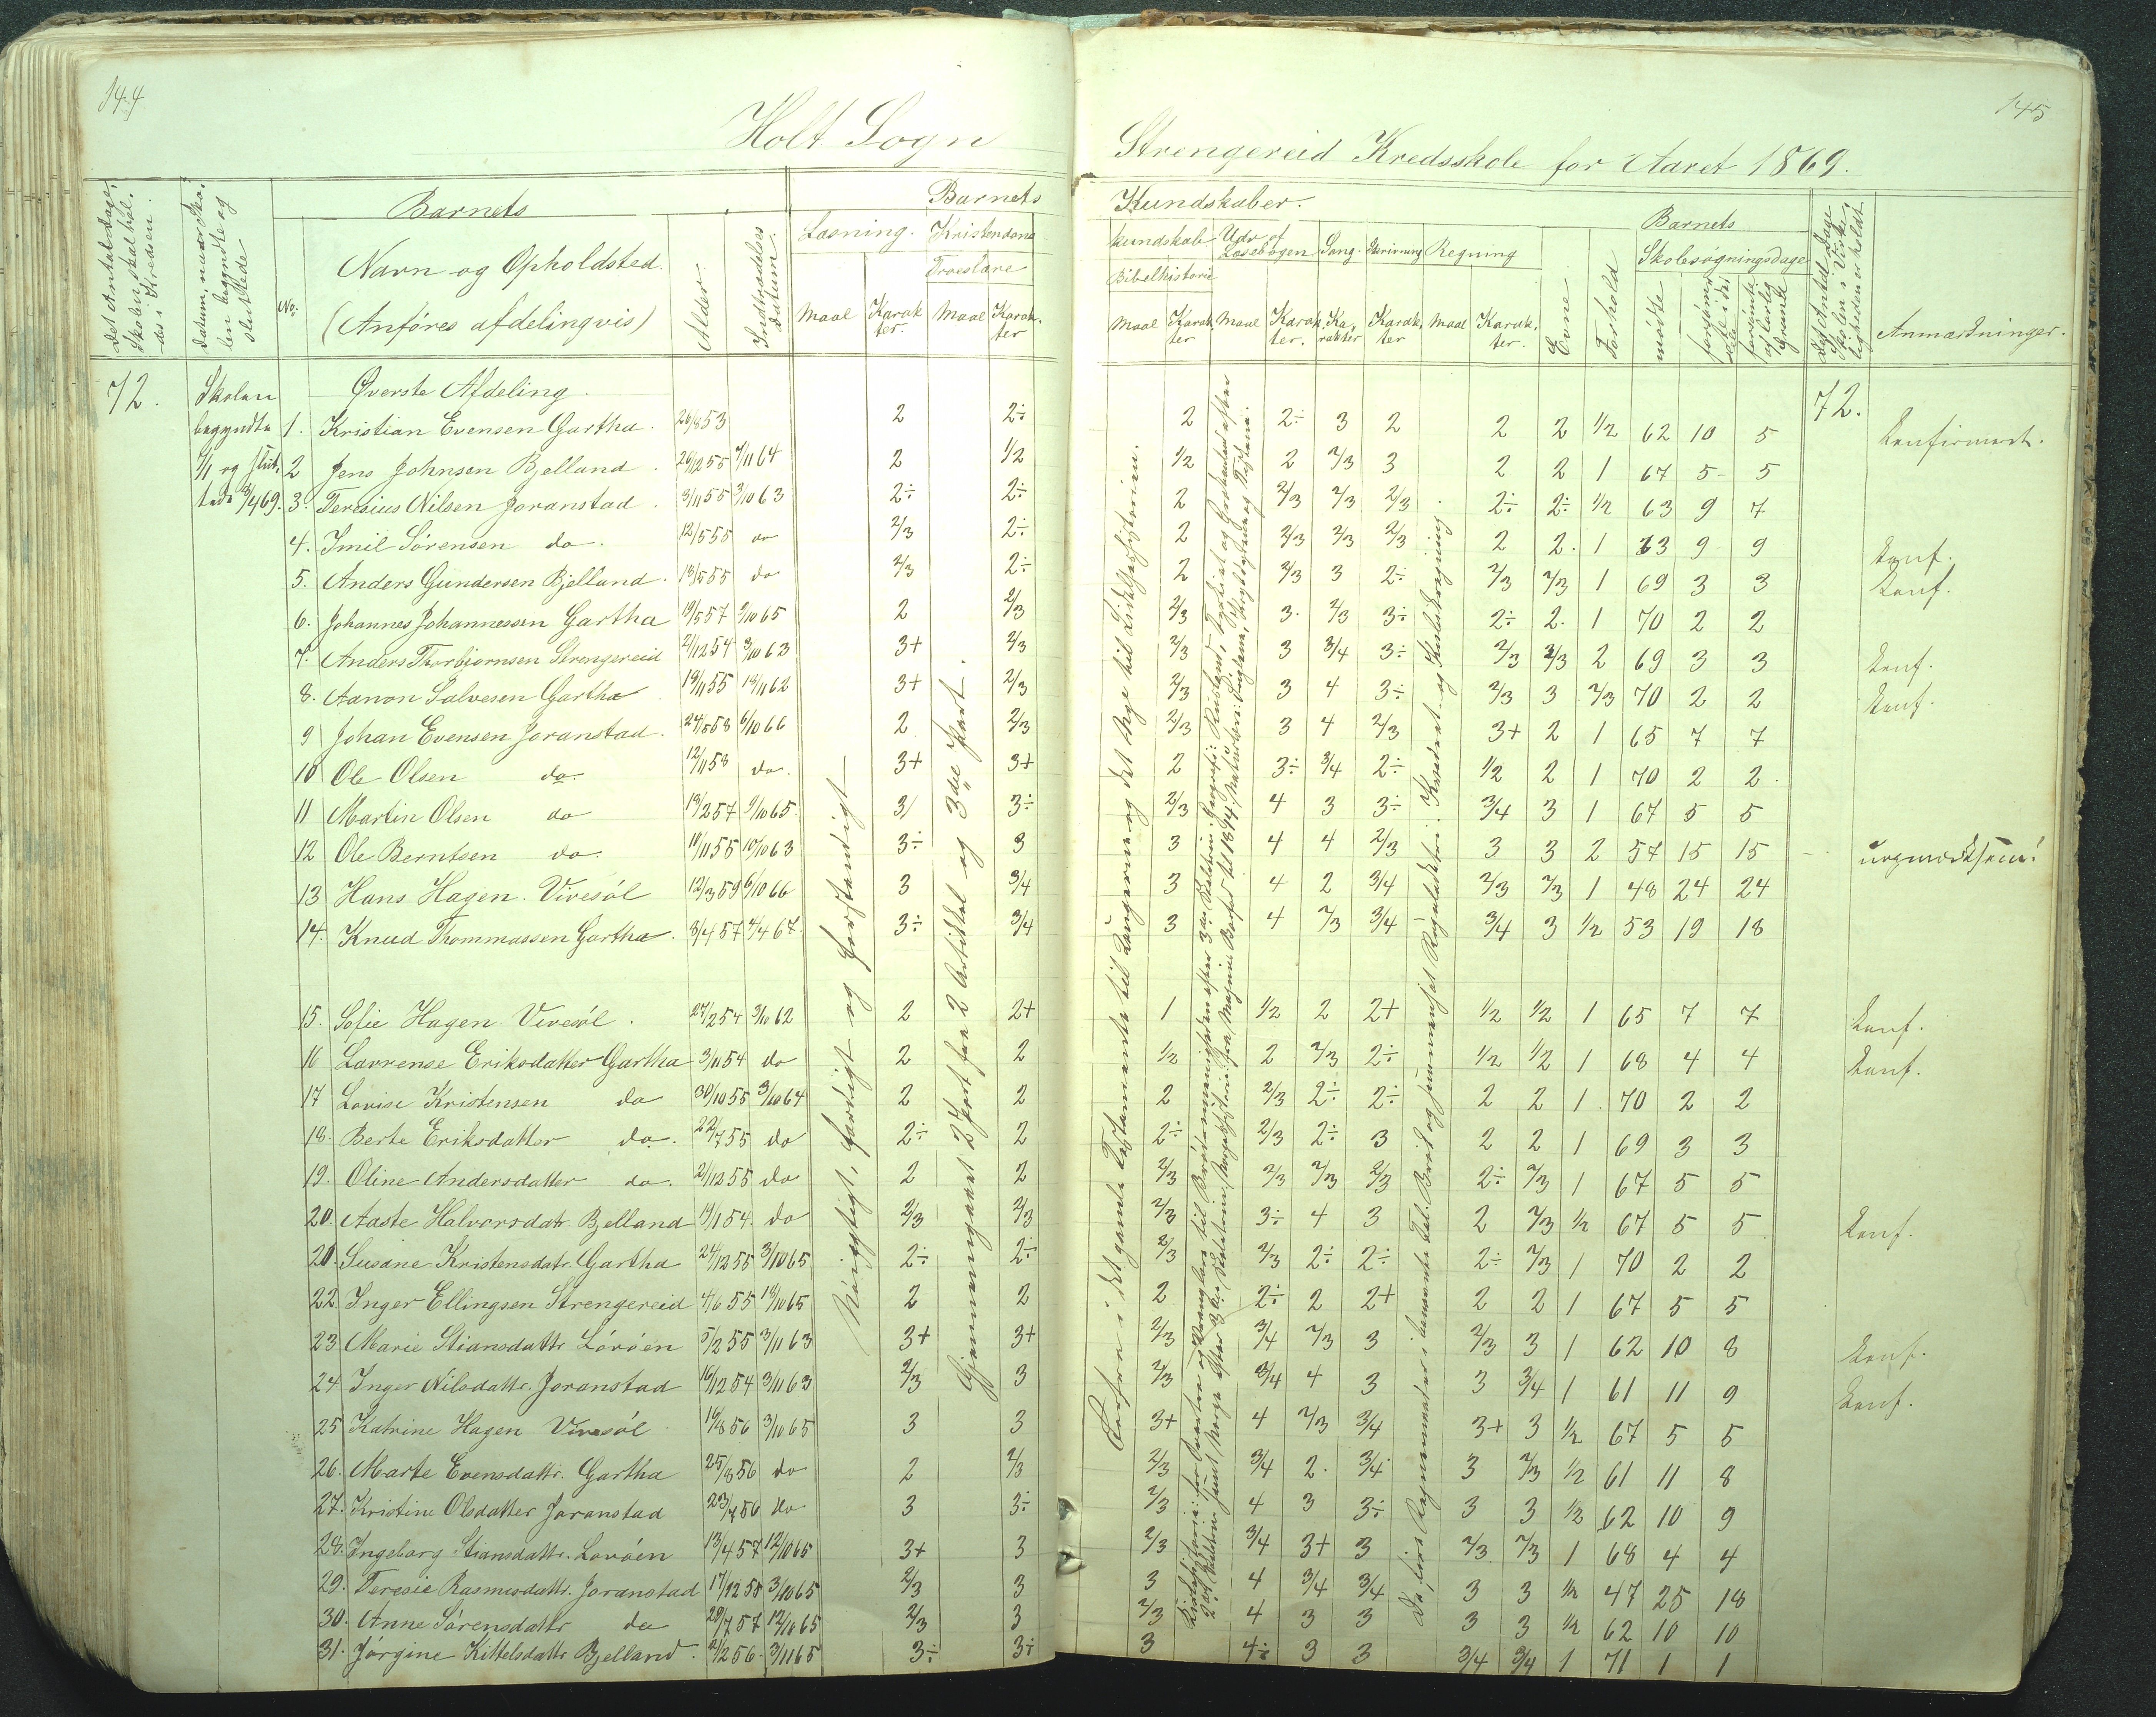 144
145
Holt Sogn
Strengereid Kredsskole for Aaret 1869.
Det Antal Dage, Skolen skal holdes i Kredsen.
Datum, naar Skolen begyndte og sluttede
No.
Barnets
Navn og Opholdsted.
(Anføres afdelingvis)
Alder.
Indtrædelses datum.
Barnets
Kundskaber.
Læsning.
Kristendoms
kundskab
Troeslære
Bibelhistorie
Udv. af Læsebogen
Sang.
Skrivning
Regning
Maal
Karakter.
Maal
Karakter
Maal
Karakter
Maal
Karakter.
Karakter
Karakter
Maal
Karakter.
Evne
Forhold
Barnets
Skolesøgningsdage
mødte
forsømte i det hele
forsømte af lovlig Grund
Det Antal Dage Skolen i Virkeligheden er holdt
Anmærkninger.
72. Skolen begyndte 7/1 og sluttede 3/4 69.
Øverste Afdeling
72.
1. Kristian Evensen Gartha. 26/8 53 2 2÷ 2 2÷ 3 2 2 2 1/2 62 10 5 Konfirmert.
2 Jens Johnsen Bjelland. 26/2 55 7/11 64 2 1/2 1/2 2 2/3 3 2 2 1 67 5 5
3. Teresius Nilsen Joranstad. 3/11 55 3/10 63 2÷ 2÷ 2 2/3 2/3 2/3 2÷ 2÷ 1/2 63 9 7
4. Imil Sörensen do. 12/5 55 do 2/3 2÷ 2 2/3 2/3 2/3 2 2. 1 63 9 9 Konf.
5. Anders Gundersen Bjelland. 13/5 55 do 2/3 2÷ 2 2/3 3 2÷ 2/3 2/3 1 69 3 3 Konf.
6. Johannes Johannessen Gartha 19/5 57 9/10 65 2 2/3 2/3 3. 2/3 3÷ 2÷ 2. 1 70 2 2
7. Anders Thorbjørnsen Strengereid 21/12 54 3/10 63 3+ 2/3 2/3 3 3/4 3÷ 2/3 2/3 2 69 3 3 Konf.
8. Aanon Salvesen Gartha 19/11 55 19/11 62 3+ 2/3 2/3 3 4 3÷ 2/3 3 2/3 70 2 2 Konf.
9 Johan Evensen Joranstad. 24/5 58 6/10 66 2 2/3 2/3 3 4 2/3 3+ 2 1 65 7 7
10 Ole Olsen do. 12/11 58 do. 3+ 3+ 2 3÷ 3/4 2÷ 1/2 2 1 70 2 2.
11 Martin Olsen do 19/2 57 9/10 65 3/ 3÷ 2/3 4 3 3÷ 3/4 3 1 67 5 5
12 Ole Berntsen do. 11/11 55 10/10 63 3÷ 3 3 4 4 2/3 3 3 2 57 15 15 uopmærksom!
13 Hans Hagen. Vivesöl 12/3 59 6/10 66 3 3/4 3 4 2 3/4 2/3 2/3 1 48 24 24
14. Knud Thommassen Gartha. 8/4 57 4/4 67. 3÷ 3/4 3 4 2/3 3/4 3/4 3 1/2 53 19 18
15. Sofie Hagen Vivesöl. 27/2 54 3/10 62 2 2+ 1 1/2 2 2+ 1/2 1/2 1 65 7 7 Konf.
16 Lavrense Eriksdatter Gartha 3/11 54 do 2 2 1/2 2 2/3 2÷ 1/2 1/2 1 68 4 4 Konf.
17 Lovise Kristensen do 30/10 55 3/10 64 2 2 2 2/3 2÷ 2÷ 2 2 1 70 2 2
18. Berte Eriksdatter do. 22/7 55 do 2÷ 2 2÷ 2/3 2÷ 3 2 2 1 69 3 3
19. Oline Andersdatter do. 2/12 55 do 2 2 2/3 2/3 2/3 2/3 2÷ 2/3 1 67 5 5
20. Aaste Halvorsdatr. Bjelland 19/1 54. do 2/3 2/3 2/3 3÷ 4 3 2 2/3 1/2 67 5 5 Konf.
20. Susane Kristensdatr. Gartha 24/12 55 3/10 65 2÷ 2÷ 2/3 2/3 2÷ 2÷ 2÷ 2/3 1 70 2 2
22. Inger Ellingsen Strengereid 4/6 55 19/10 65 2 2 2 2÷ 2 2+ 2 2 1 67 5 5
23. Marie Stiansdattr Lövöen 5/2 55 3/11 63 3+ 3+ 2/3 3/4 2/3 3 2/3 3 1 62 10 8 Konf.
24. Inger Nilsdattr. Joranstad 16/12 54 3/11 63 2/3 3 2/3 3/4 4 3 3 3/4 1 61 11 9 Konf.
25 Katrine Hagen Vivesöl 16/8 56 3/10 65 3 3 3+ 4 2/3 3/4 3+ 3 1/2 67 5 5
26. Marte Evensdattr. Gartha 25/8 56 do 2 2/3 2/3 3/4 2. 3/4 3 2/3 1/2 61 11 8
27. Kristine Olsdatter Joranstad 23/7 56 do 3 3÷ 2/3 4 3 3÷ 3 3 1/2 62 10 9
28. Ingeborg Stiansdattr. Lovöen 13/4 57 12/10 65 3+ 3 2/3 3/4 3+ 3 2/3 2/3 1 68 4 4
29. Teresie Rasmusdattr. Joranstad 17/12 58 3/10 65 2/3 3 3 4 3/4 3/4 3 3 1/2 47 25 18
30. Anne Sörensdattr do 29/7 57 12/10 65 2/3 3 2/3 4 3 3 3 3 1/2 62 10 10
31. Jörgine Kittelsdattr Bjelland. 2/2 56. 3/11 65 3÷ 3÷ 3 4÷ 3 3 3/4 3/4 1 71 1 1
Nöiagtigt, færdigt og forstandigt
Gjennemgaaet 2 Part fra 2 Artikkel og 3die Part.
det gamle Testamente til Kongerne og det Nye til Lidelseshistorien.